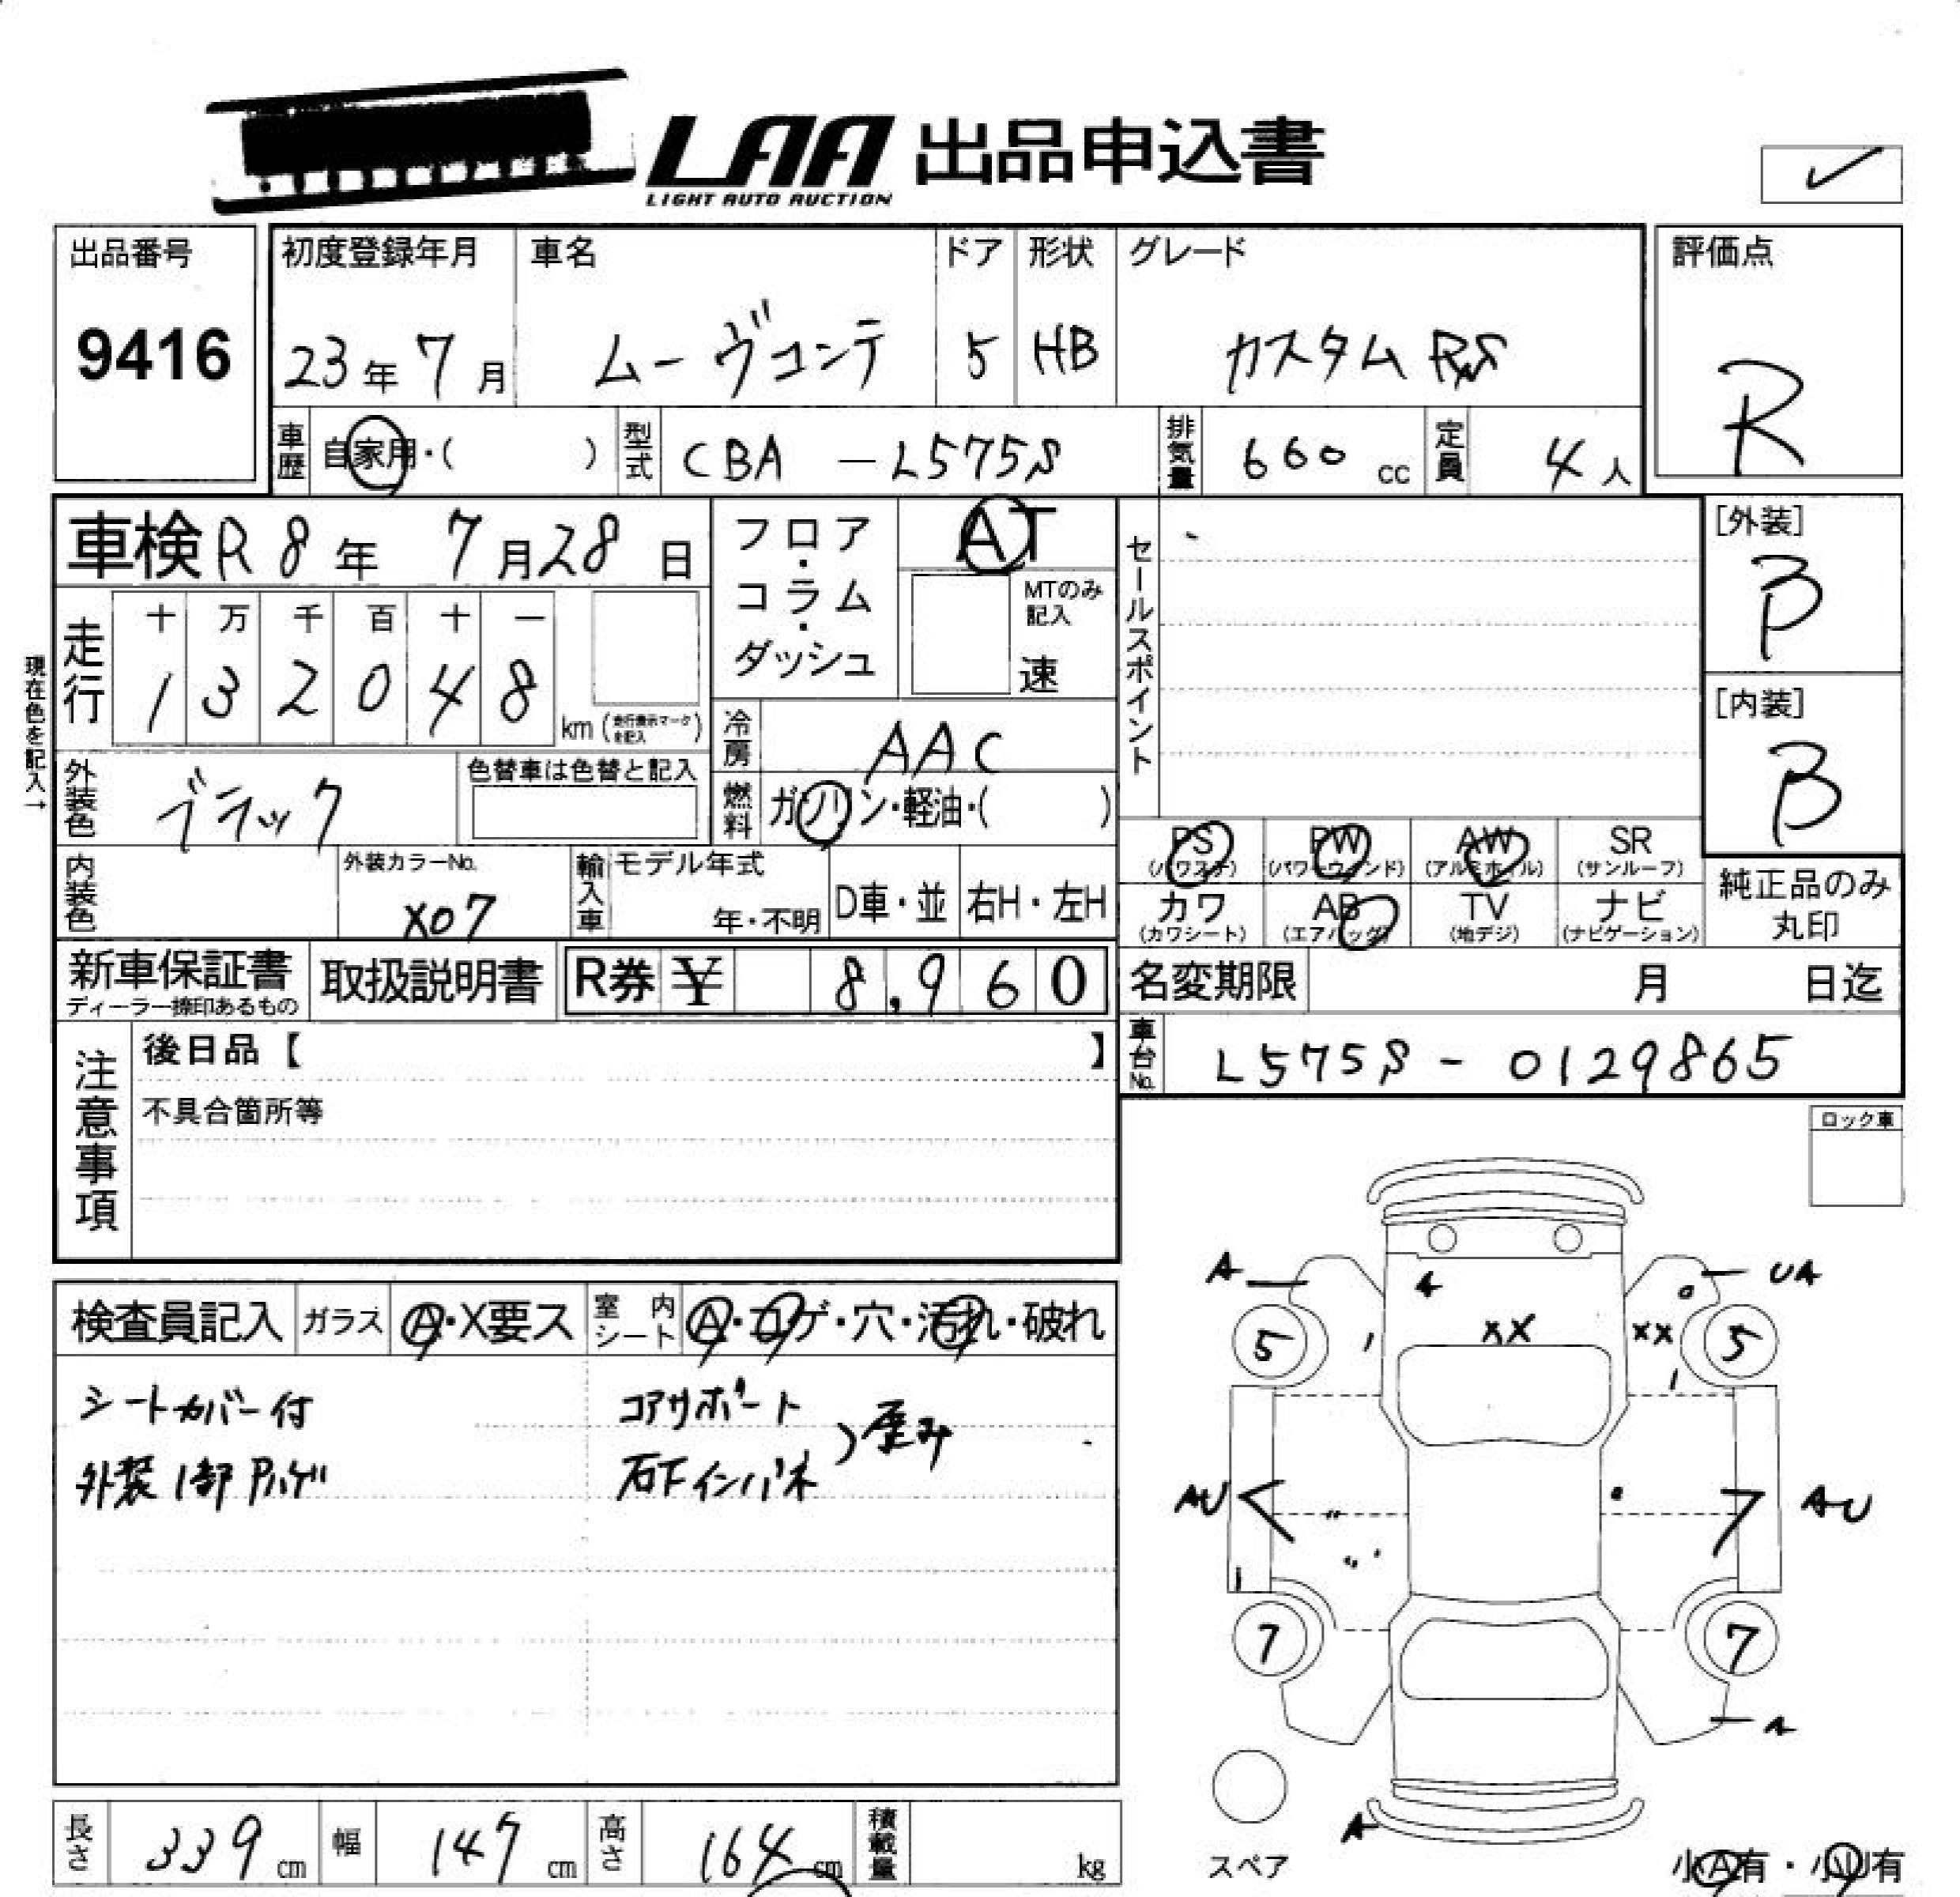 LAA 出品申込書
LIGHT AUTO AUCTION
出品番号 初度登録年月 車名 ドア 形状 グレード 評価点
9416 23年 7月 ムーヴコンテ 5 HB カスタム RS R
車歴 自家用・( ) 型式 CBA - L575S 排気量 660 cc 定員 4人
車検 R8年 7月28日 フロア・コラム・ダッシュ AT セールスポイント [外装]
B
MTのみ記入
速
現在色を記入→
走行 十 万 千 百 十 一
1 3 2 0 4 8 km (走行表示マークを記入)
[内装]
B
冷房 AAC
外装色 ブラック 色替車は色替と記入 燃料 ガソリン・軽油・( )
PS (パワステ) PW (パワーウィンド) AW (アルミホイル) SR (サンルーフ)
内装色 外装カラーNo. X07 輸入車 モデル年式 年・不明 D車・並 右H・左H
カワ (カワシート) AB (エアバッグ) TV (地デジ) ナビ (ナビゲーション) 純正品のみ丸印
新車保証書 ディーラー捺印あるもの 取扱説明書 R券 ¥ 8,960 名変期限 月 日迄
注意事項 後日品【 】 車台No. L575S - 0129865
不具合箇所等
ロック車
検査員記入 ガラス A・X要ス 室内シート A・コゲ・穴・汚れ・破れ
シートカバー付 コアサポート
外装1部Pハゲ 右Fインパネ ) 歪み
A UA
4
XX XX
5 5
AU AU
7 7
A
スペア
小A有・小U有
長さ 339 cm 幅 147 cm 高さ 164 cm 積載量 kg